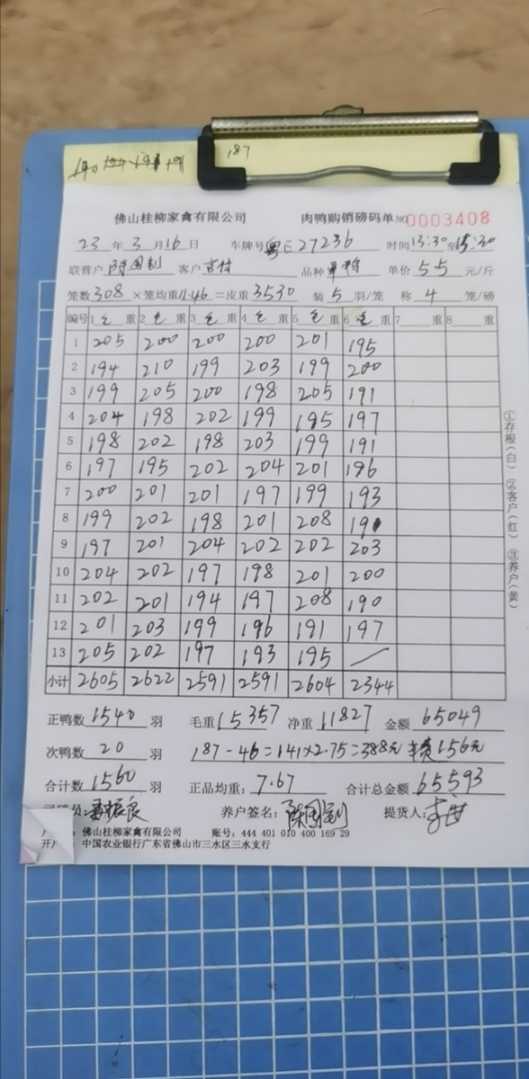 187
佛山桂柳家禽有限公司 肉鸭购销磅码单 № 0003408
23 年 3 月 16 日 车牌号 粤E27236 时间 13:30 至 15:30
联营户 陈国剑 客户 品种 单价 5.5 元/斤
笼数 308 ×笼均重 11.46 =皮重 3530 装 5 羽/笼 称 4 笼/磅
编号 1 毛 重 2 毛 重 3 毛 重 4 毛 重 5 毛 重 6 毛 重 7 重 8 重
1 205 200 200 200 201 195
2 194 210 199 203 199 200
3 199 205 200 198 205 191
4 204 198 202 199 195 197
5 198 202 198 203 199 191
6 197 195 202 204 201 196
7 200 201 201 197 199 193
8 199 202 198 201 208 190
9 197 201 204 202 202 203
10 204 202 197 198 201 200
11 202 201 194 197 208 190
12 201 203 199 196 191 197
13 205 202 197 193 195
小计 2605 2622 2591 2591 2604 2344
①存根(白) ②客户(红) ③养户(黄)
正鸭数 1540 羽 毛重 15357 净重 11827 金额 65049
次鸭数 20 羽 187-46=141×2.75=388元 156元
合计数 1560 羽 正品均重: 7.67 合计总金额 65593
员: 养户签名: 陈国剑 提货人:
佛山桂柳家禽有限公司 账号: 444 401 010 400 169 29
开 中国农业银行广东省佛山市三水区三水支行